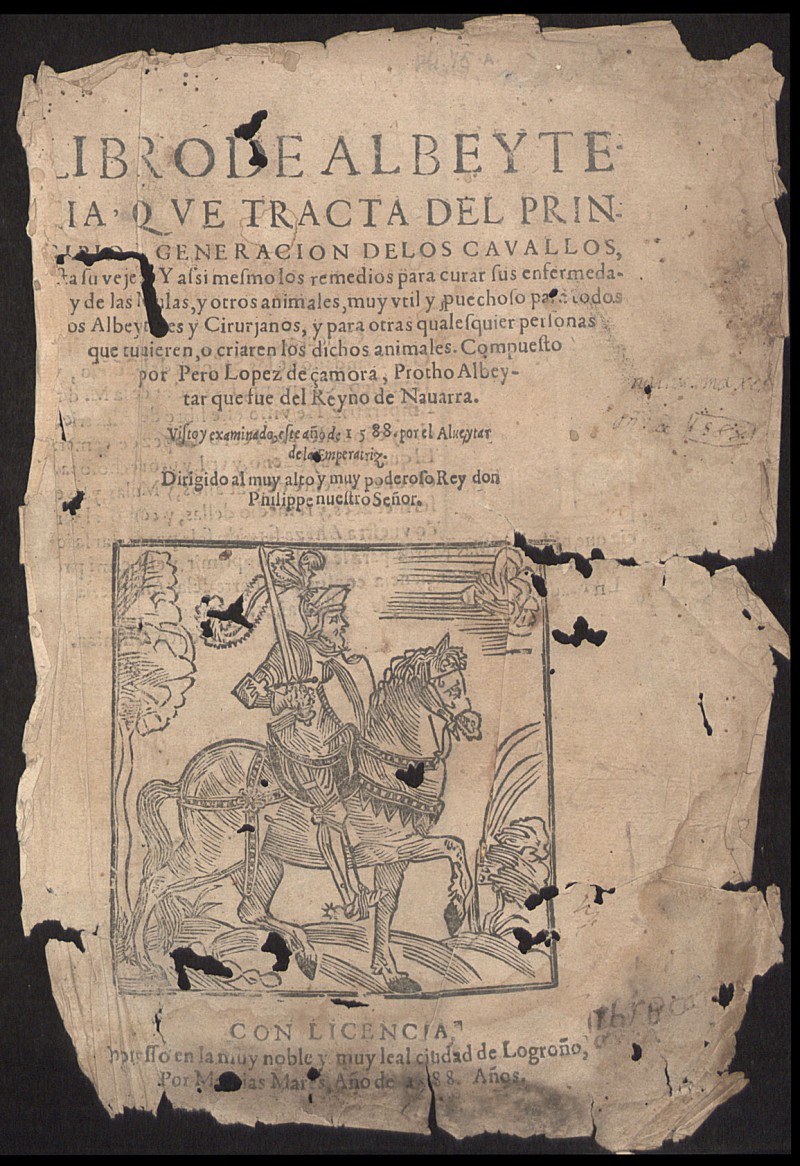 LIBRO DE ALBEYTE-
IA, QVE TRACTA DEL PRIN-
GENERACION DELOS CAVALLOS,
ta ſu veje Y aſsi meſmo los remedios para curar ſus enfermeda-
y de las Mulas, y otros animales, muy vtil y ꝓuechoſo para todos
os Albeytares y Cirurjanos, y para otras qualeſquier perſonas
que tuuieren, o criaren los dichos animales. Compueſto
por Pero Lopez de çamora, Protho Albey-
tar que fue del Reyno de Nauarra.
Viſto y examinado, eſte año de 1588. por el Alueytar
de la Emperatriz.
Dirigido al muy alto y muy poderoſo Rey don
Philippe nuestro Señor.
CON LICENCIA
preſſo en la muy noble y muy leal ciudad de Logroño,
Por Mares, Año de 1588. Años.